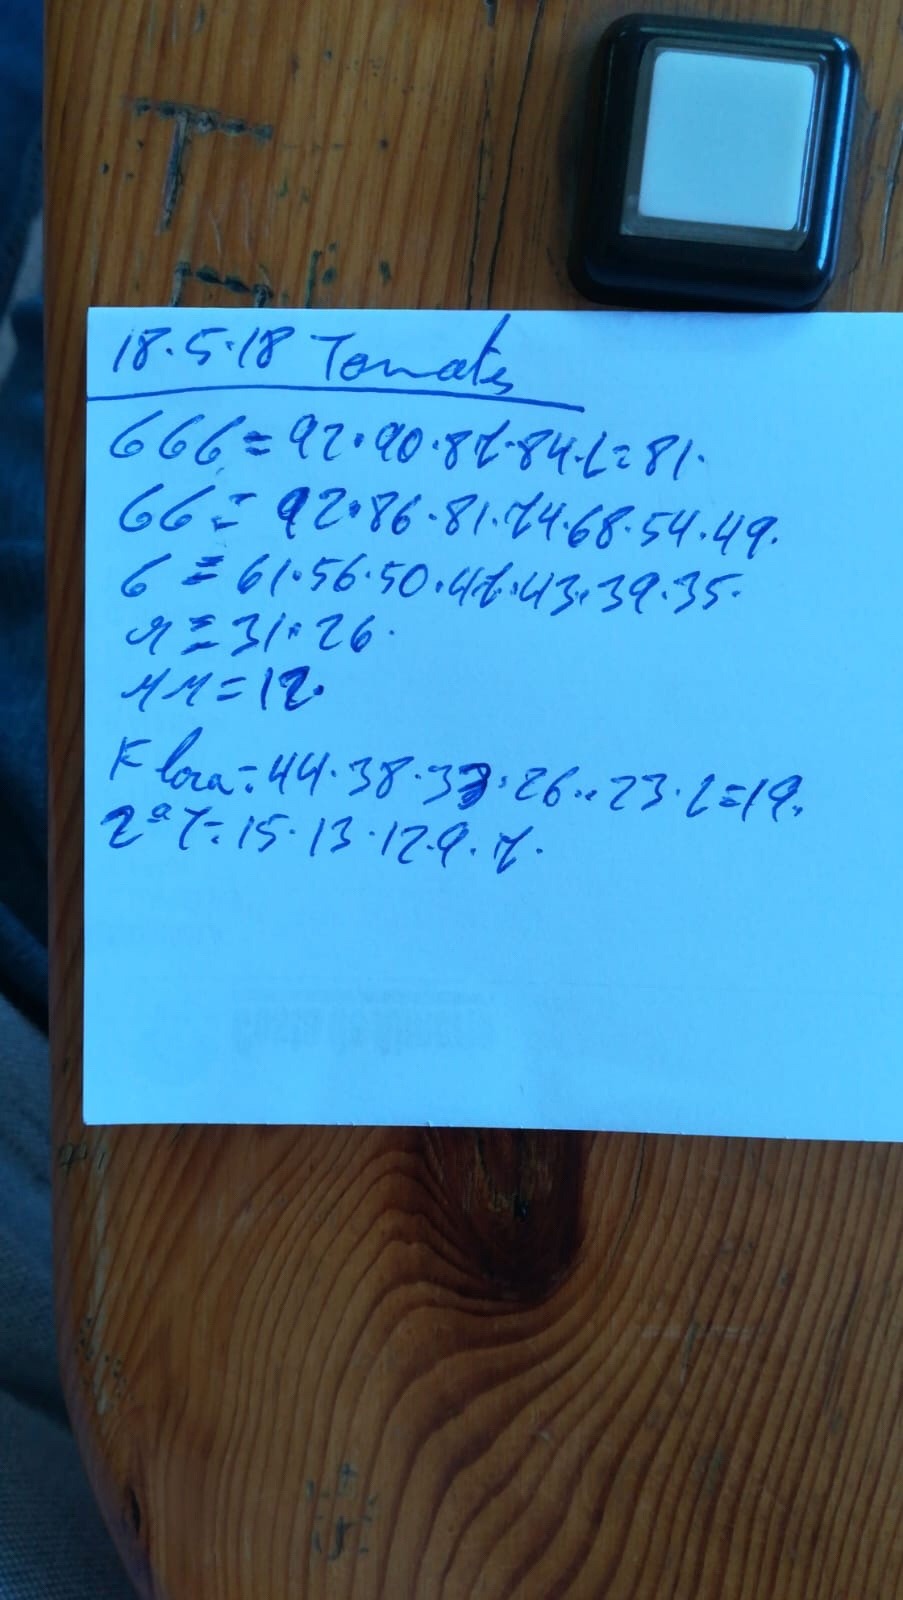 18.5.18 Tomates
GGG = 92.90.87.84.L=81.
GG = 92.86.81.74.68.54.49.
G = 61.56.50.47.43.39.35.
M = 31.26.
MM = 12.
Flora = 44.38.33.26..23.L=19.
2ª T = 15.13.12.9.7.